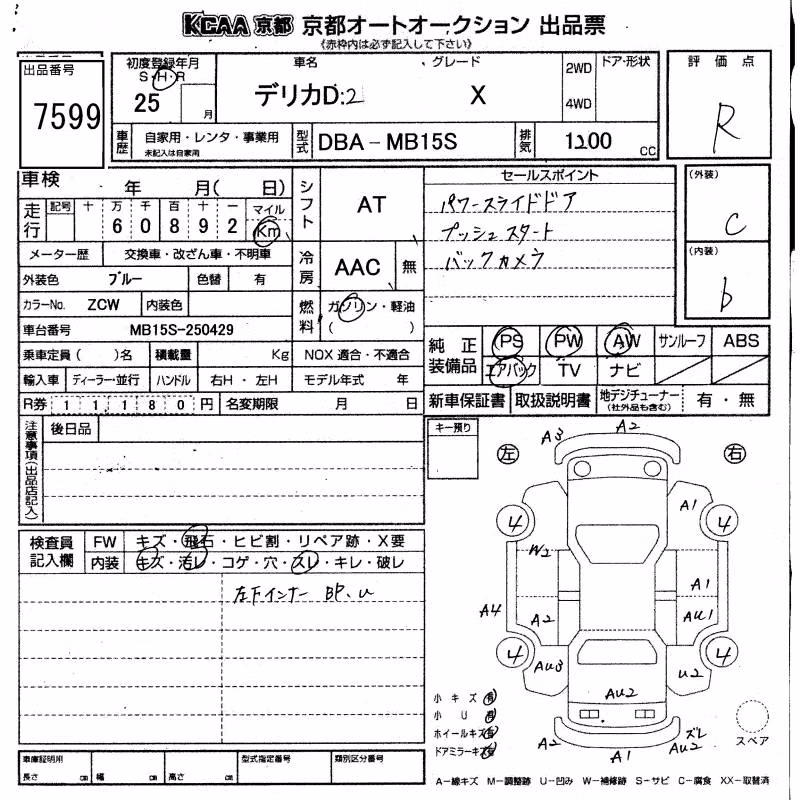 KCAA 京都 京都オートオークション 出品票
《赤枠内は必ず記入して下さい》
出品番号
7599
初度登録年月
S・H・R
25 月
車名 グレード
デリカD:2 X
2WD
4WD
ドア・形状
評価点
R
車歴 自家用・レンタ・事業用
未記入は自家用
型式 DBA-MB15S
排気 1200 CC
車検 年 月( 日)
走行 記号 十 万 千 百 十 一 マイル
6 0 8 9 2 Km
メーター歴 交換車・改ざん車・不明車
外装色 ブルー 色替 有
カラーNo. ZCW 内装色
車台番号 MB15S-250429
乗車定員( )名 積載量 Kg NOX 適合・不適合
輸入車 ディーラー・並行 ハンドル 右H・左H モデル年式 年
R券 1 1 1 8 0 円 名変期限 月 日
シフト AT
冷房 AAC 無
燃料 ガソリン・軽油
( )
セールスポイント
パワースライドドア
プッシュスタート
バックカメラ
(外装)
C
(内装)
b
純正装備品 PS PW AW サンルーフ ABS
エアバック TV ナビ
新車保証書 取扱説明書 地デジチューナー
(社外品も含む) 有・無
注意事項(出品店記入)
後日品
検査員記入欄
FW キズ・飛石・ヒビ割・リペア跡・X要
内装 キズ・汚レ・コゲ・穴・スレ・キレ・破レ
左下インナー BP、U
キー預り
左 右
A3 A2
4 A1 4
W2
A1
A4 A2 AU1
4 AU3 U2 4
AU2
小キズ 有
小U 有
ホイールキズ 有
ドアミラーキズ 有
A2 A1 AU2 ズレ
スペア
A-線キズ M-調整跡 U-凹み W-補修跡 S-サビ C-腐食 XX-取替済
車庫証明用 型式指定番号 類別区分番号
長さ cm 幅 cm 高さ cm